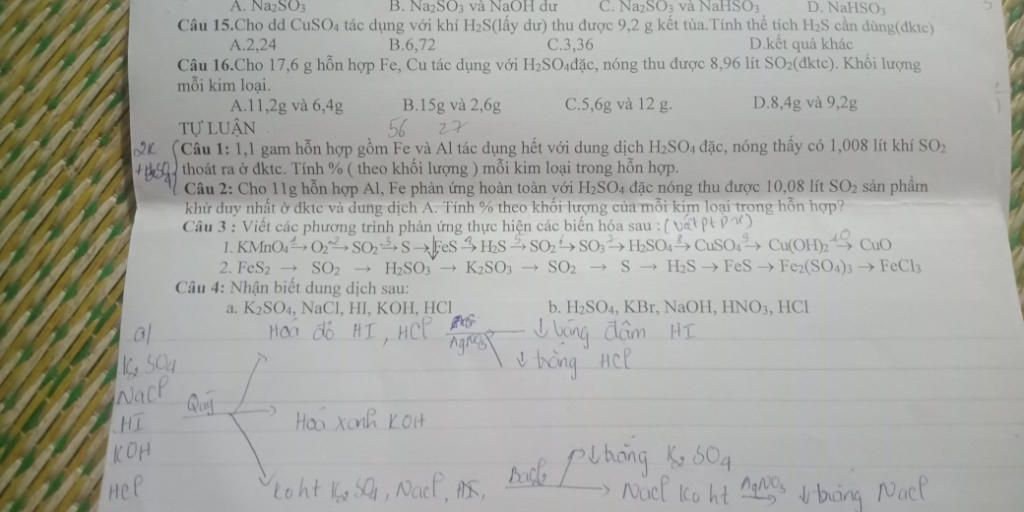 A. Na₂SO₃ B. Na₂SO₃ và NaOH dư C. Na₂SO₃ và NaHSO₃ D. NaHSO₃
Câu 15.Cho dd CuSO₄ tác dụng với khí H₂S(lấy dư) thu được 9,2 g kết tủa.Tính thể tích H₂S cần dùng(đktc)
A.2,24 B.6,72 C.3,36 D.kết quả khác
Câu 16.Cho 17,6 g hỗn hợp Fe, Cu tác dụng với H₂SO₄đặc, nóng thu được 8,96 lít SO₂(đktc). Khối lượng
mỗi kim loại.
A.11,2g và 6,4g B.15g và 2,6g C.5,6g và 12 g. D.8,4g và 9,2g
TỰ LUẬN 56 27
Câu 1: 1,1 gam hỗn hợp gồm Fe và Al tác dụng hết với dung dịch H₂SO₄ đặc, nóng thấy có 1,008 lít khí SO₂
thoát ra ở đktc. Tính % ( theo khối lượng ) mỗi kim loại trong hỗn hợp.
Câu 2: Cho 11g hỗn hợp Al, Fe phản ứng hoàn toàn với H₂SO₄ đặc nóng thu được 10,08 lít SO₂ sản phẩm
khử duy nhất ở đktc và dung dịch A. Tính % theo khối lượng của mỗi kim loại trong hỗn hợp?
Câu 3 : Viết các phương trình phản ứng thực hiện các biến hóa sau :
1. KMnO₄ → O₂ → SO₂ → S → FeS → H₂S → SO₂ → SO₃ → H₂SO₄ → CuSO₄ → Cu(OH)₂ → CuO
2. FeS₂ → SO₂ → H₂SO₃ → K₂SO₃ → SO₂ → S → H₂S → FeS → Fe₂(SO₄)₃ → FeCl₃
Câu 4: Nhận biết dung dịch sau:
a. K₂SO₄, NaCl, HI, KOH, HCl b. H₂SO₄, KBr, NaOH, HNO₃, HCl
a/ Hoá đỏ HI, HCl AgNO₃ ↓ vàng đậm HI
K₂SO₄ ↓ trắng HCl
NaCl Quỳ
HI Hoá xanh KOH
KOH
HCl Ko ht K₂SO₄, NaCl, BaCl₂ ↓ trắng K₂SO₄
NaCl ko ht AgNO₃ ↓ trắng NaCl